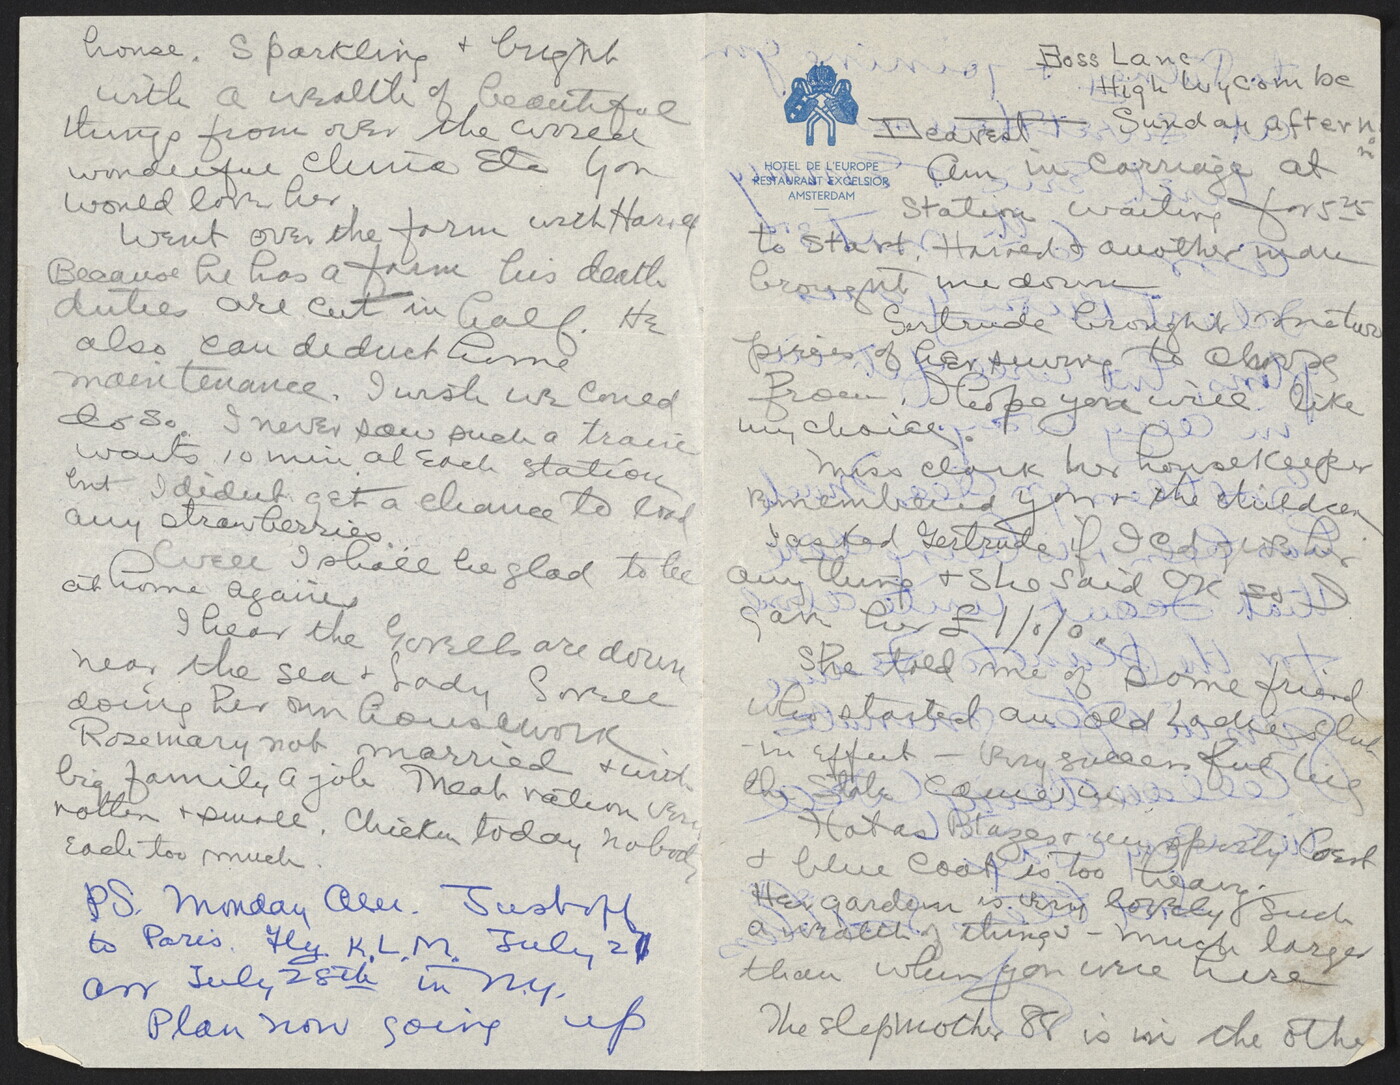 Foss Lane
High Wycombe
Sunday aftern
oon
HOTEL DE L'EUROPE
RESTAURANT EXCELSIOR
AMSTERDAM
Dearest —
Am in carriage at
station waiting for 5 25
to start. Harold & another man
brought me down
Gertrude brought
of her to chose
from. I hope you will like
my choice.
Miss Clark her housekeeper
remembered you & the children
I asked Gertrude if I cd give her
anything & she said OK so I
gave her £1/0/0.
She told me of some friend
who started an old Ladies Club
in effect — very successful till
the State came in.
Hot as Blazes & my sporty coat
& blue coat is too heavy.
Her garden is very lovely such
a wealth of things — much larger
than when you were here
The stepmother 88 is in the other
house. Sparkling & bright
with a wealth of beautiful
things from over the
wonderful china Etc You
would love her.
Went over the farm with Harold
Because he has a farm his death
duties are cut in half. He
also can deduct home
maintenance. I wish we could
do so. I never saw such a train
waits 10 min at Each station
but I didn't get a chance to load
any strawberries.
Well I shall be glad to be
at home again
I hear the are down
near the sea & Lady
doing her own housework
Rosemary not married & with
big family a job. Meat ration very
rotten & small. Chicken today nobody
Each too much.
PS. Monday am. Just off
to Paris. Fly K.L.M. July 27
arr July 28th in N.Y.
Plan now going up